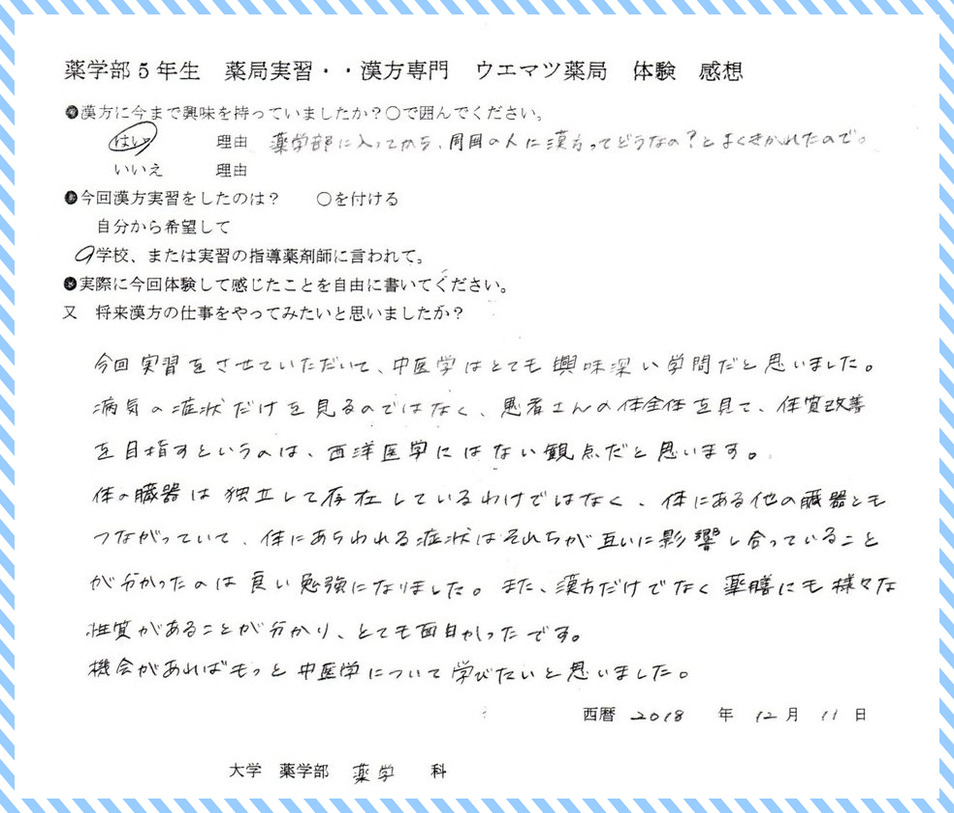 薬学部5年生　薬局実習・・漢方専門　ウエマツ薬局　体験　感想
●漢方に今まで興味を持っていましたか？○で囲んでください。
はい　理由　薬学部に入ってから、周囲の人に漢方ってどうなの？とよくきかれたので。
いいえ　理由
●今回漢方実習をしたのは？　○を付ける
自分から希望して
○学校、または実習の指導薬剤師に言われて。
●実際に今回体験して感じたことを自由に書いてください。
又　将来漢方の仕事をやってみたいと思いましたか？
今回実習をさせていただいて、中医学はとても興味深い学問だと思いました。
病気の症状だけを見るのではなく、患者さんの体全体を見て、体質改善
を目指すというのは、西洋医学にはない観点だと思います。
体の臓器は独立して存在しているわけではなく、体にある他の臓器とも
つながっていて、体にあらわれる症状はそれらが互いに影響し合っていること
が分かったのは良い勉強になりました。また、漢方だけでなく薬膳にも様々な
性質があることが分かり、とても面白かったです。
機会があればもっと中医学について学びたいと思いました。
西暦 2018 年 12月 11日
大学　薬学部　薬学　科